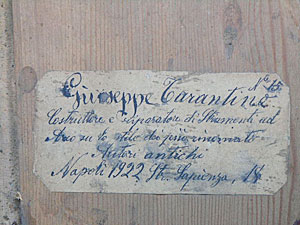 No 15
Giuseppe Tarantino
Costruttore e Riparatore di Strumenti ad
Arco su lo stile dei più rinomati
Autori antichi
Napoli 1922 St. Sapienza, 14